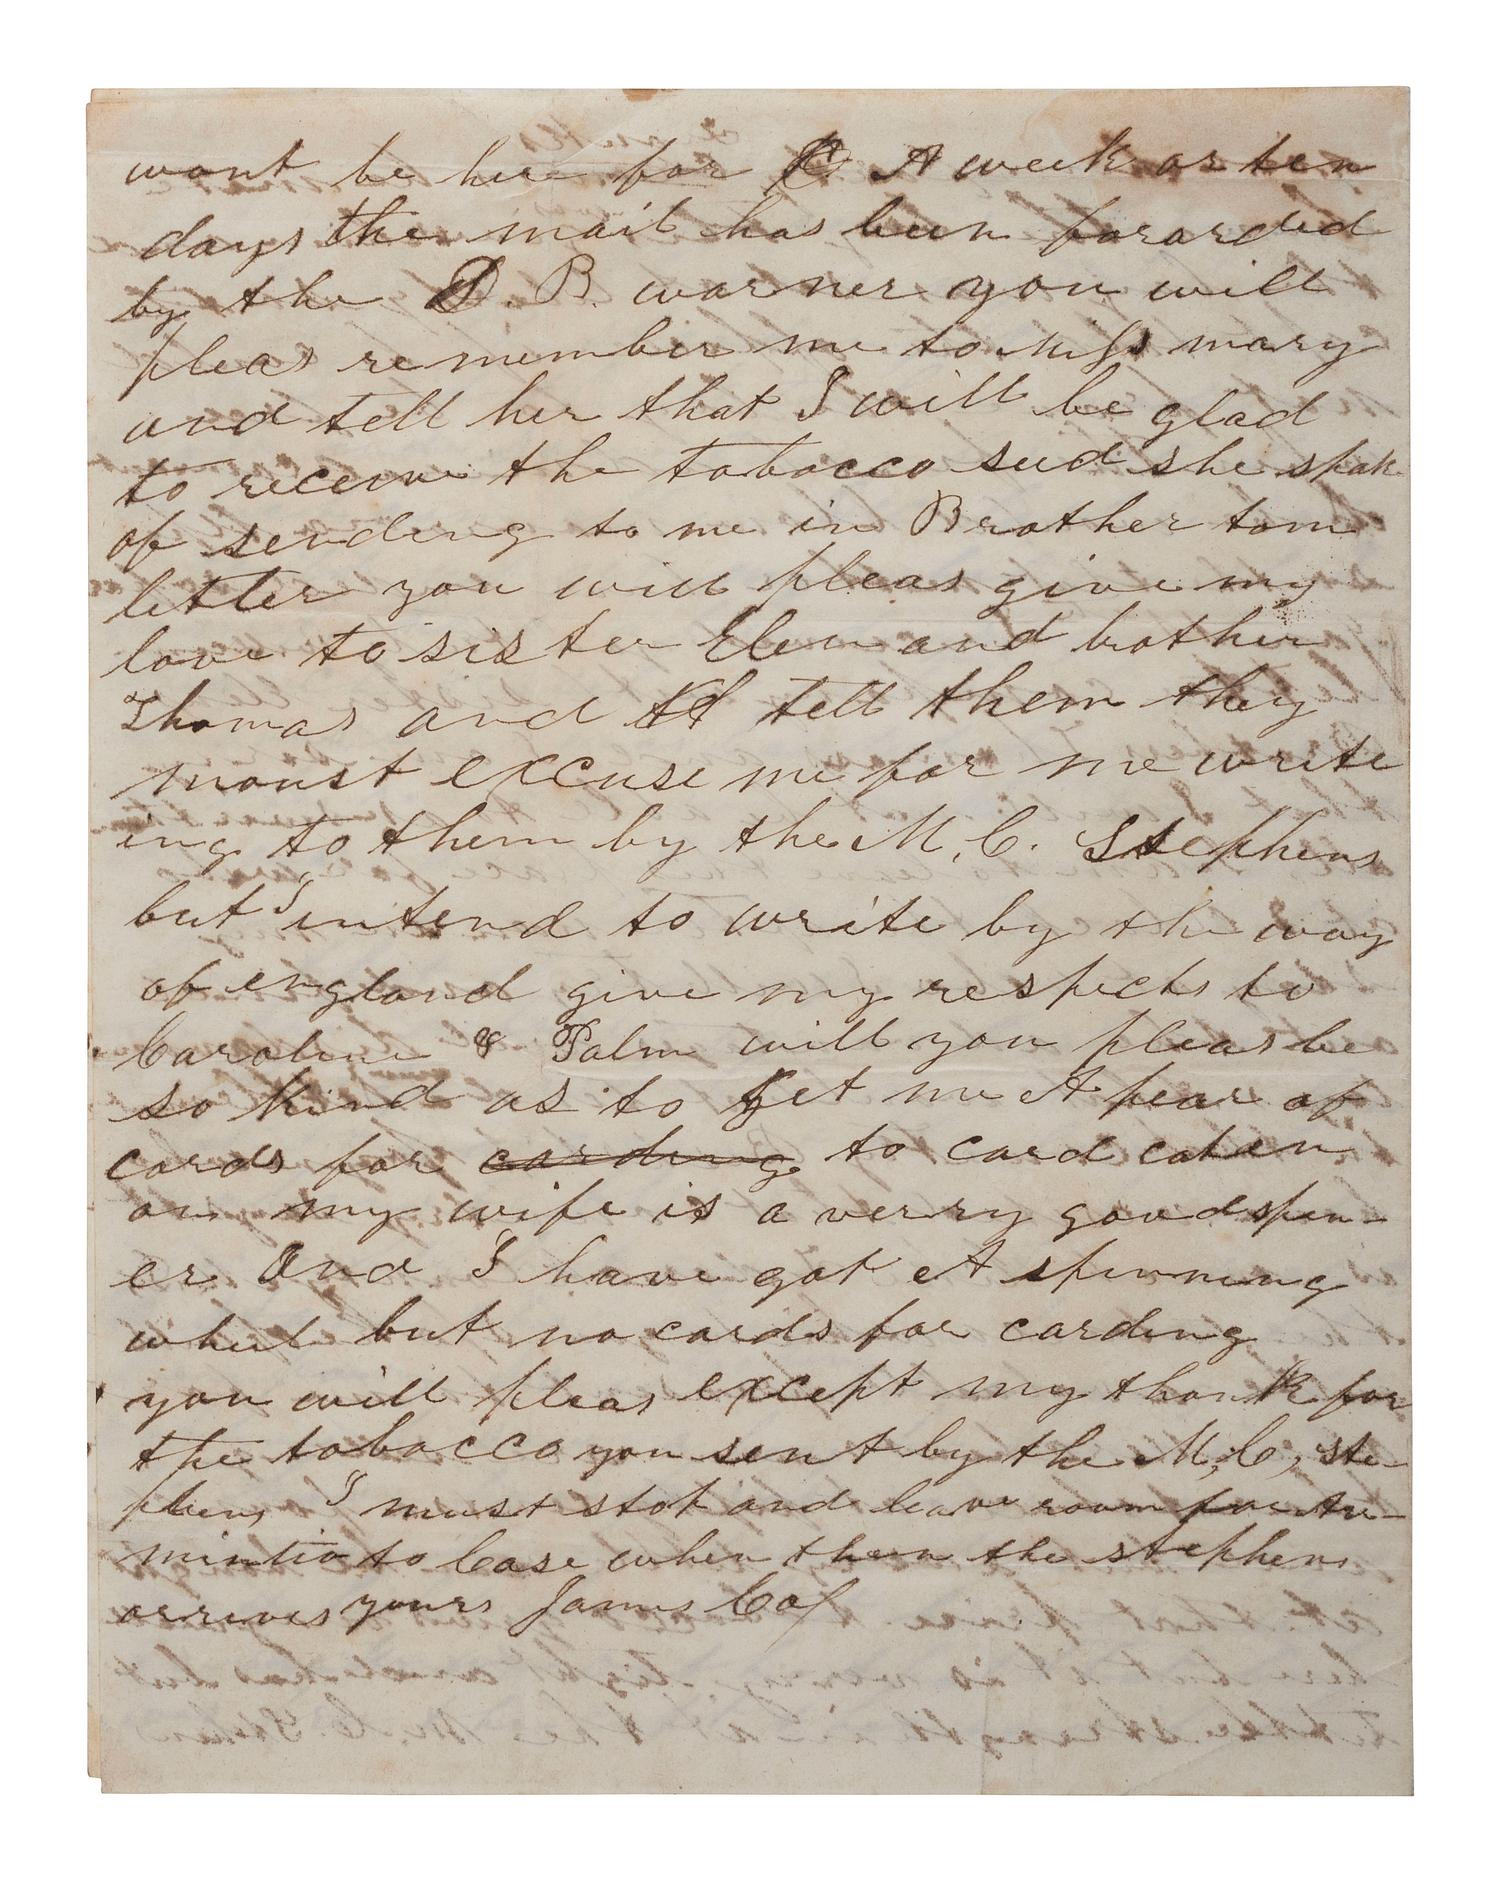 wont be here for A week or ten
days the mail has been forarded
by the D. B. warner you will
pleas remember me to miss mary
and tell her that I will be glad
to receive the tobacco seed she spak
of sending to me in Brother tom
letter you will pleas give my
love to sister Elen and brother
Thomas and tell them they
moust excuse me for me write
ing to them by the M. C. Stephens
but I intend to write by the way
of england give my respects to
Caroline & Palm will you pleas be
so kind as to get me A pear of
cards for carding to card coten
on my wife is a verry good spin-
er And I have got A spinning
wheel but no cards for carding
you will pleas except my thank for
the tobacco you sent by the M, C, Ste-
phens I must stop and leave room for
to Case when then the stephens
arrives yours James Cox